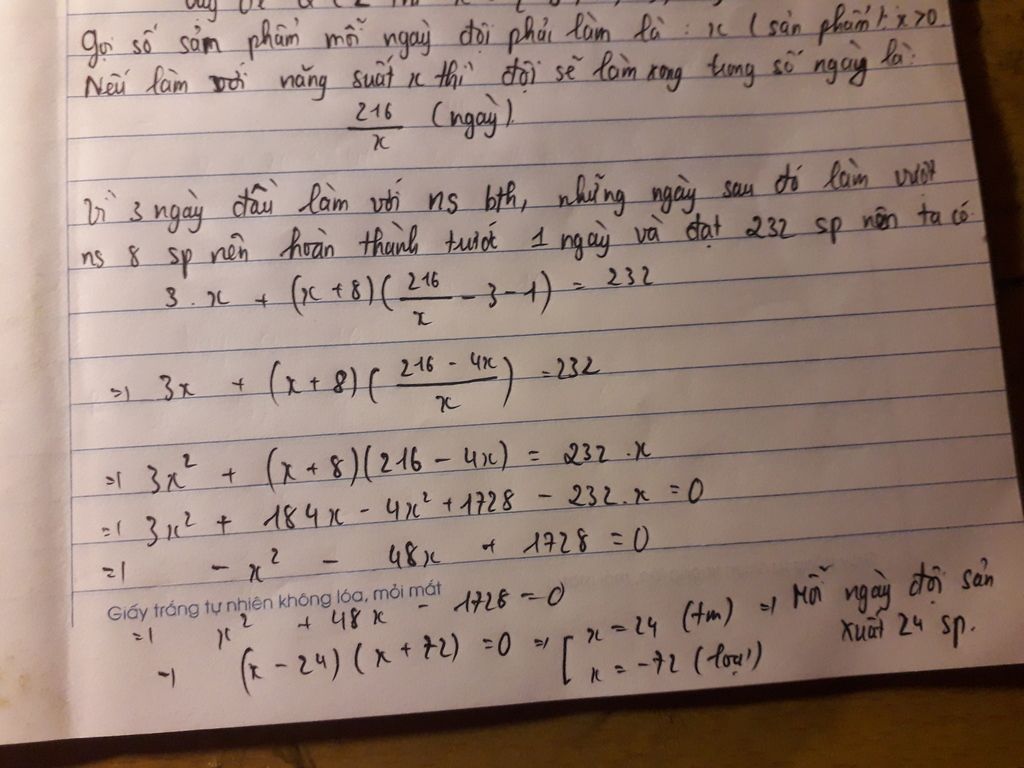 Gọi số sản phẩm mỗi ngày đội phải làm là : x ( sản phẩm ; x>0
Nếu làm với năng suất x thì đội sẽ làm xong trong số ngày là:
216/x (ngày)
Vì 3 ngày đầu làm với ns bth, những ngày sau đó làm vượt
ns 8 sp nên hoàn thành trước 1 ngày và đạt 232 sp nên ta có
3 . x + (x+8)(216/x - 3 - 1) = 232
=> 3x + (x+8)((216 - 4x)/x) = 232
=> 3x² + (x+8)(216 - 4x) = 232 . x
=> 3x² + 184x - 4x² + 1728 - 232.x = 0
=> - x² - 48x + 1728 = 0
Giấy trắng tự nhiên không lóa, mỏi mắt
=> x² + 48x - 1728 = 0
=> (x - 24)(x + 72) = 0 => [ x = 24 (tm) => Mỗi ngày đội sản
x = -72 (loại) xuất 24 sp.